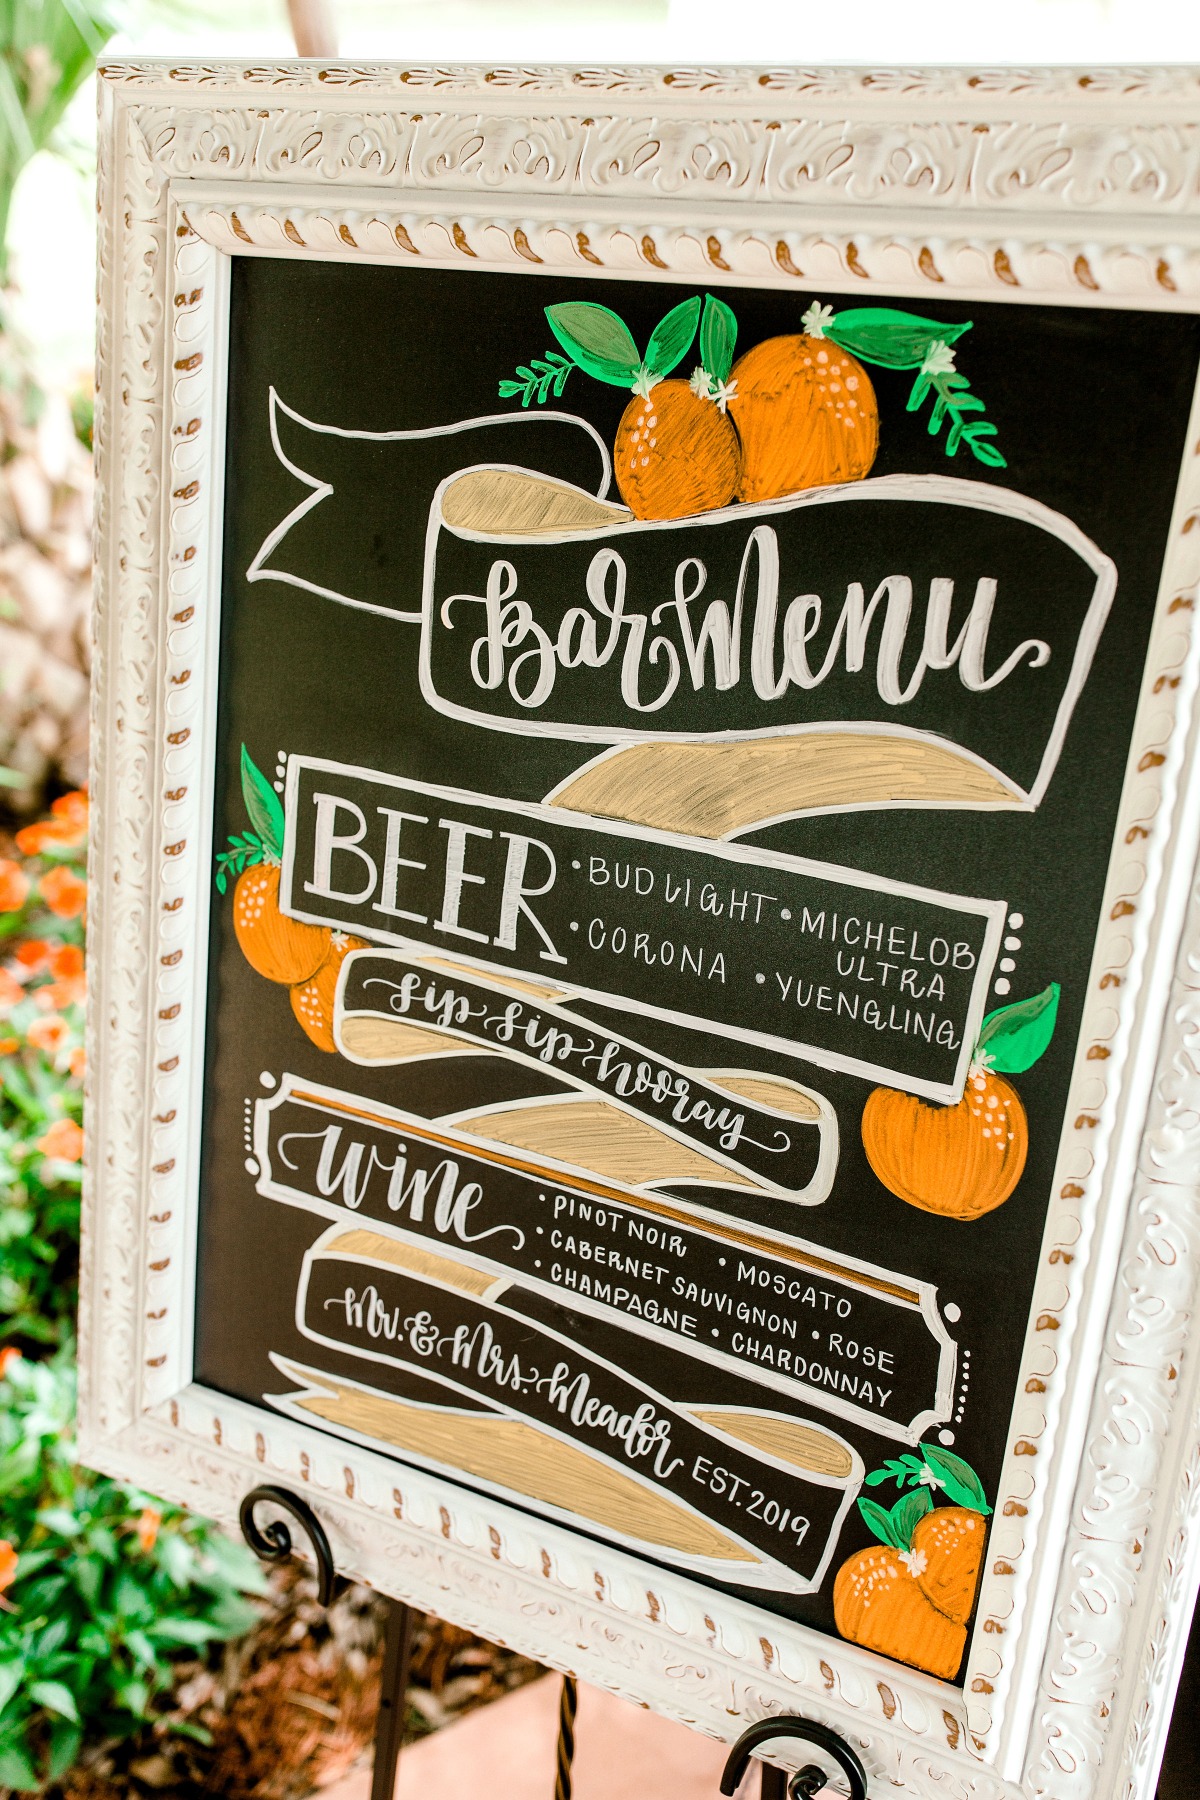 Bar Menu
BEER
• BUD LIGHT • MICHELOB ULTRA
• CORONA • YUENGLING
Sip Sip Hooray
Wine
• PINOT NOIR • MOSCATO
• CABERNET SAUVIGNON • ROSE
• CHAMPAGNE • CHARDONNAY
Mr. & Mrs. Meador EST. 2019